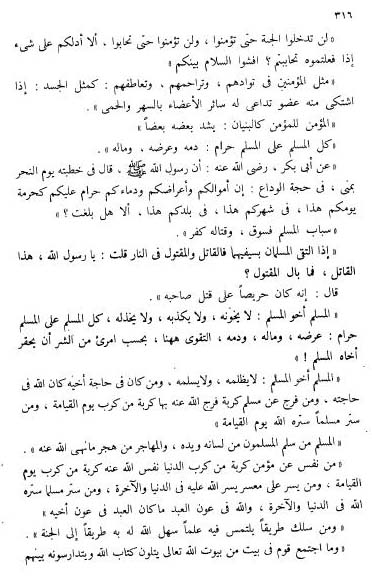 ٣١٦
« لن تدخلوا الجنة حتى تؤمنوا ، ولن تؤمنوا حتى تحابوا . ألا أدلكم على شىء
إذا فعلتموه تحاببتم ؟ افشوا السلام بينكم »
« مثل المؤمنين فى توادهم ، وتراحمهم ، وتعاطفهم : كمثل الجسد : إذا
اشتكى منه عضو تداعى له سائر الأعضاء بالسهر والحمى » .
« المؤمن للمؤمن كالبنيان : يشد بعضه بعضاً »
« كل المسلم على المسلم حرام : دمه وعرضه ، وماله » .
« عن أبى بكر ، رضى الله عنه : أن رسول الله ﷺ ، قال فى خطبته يوم النحر
بمنى ، فى حجة الوداع : إن أموالكم وأعراضكم ودماءكم حرام عليكم كحرمة
يومكم هذا ، فى شهركم هذا ، فى بلدكم هذا . ألا هل بلغت ؟ »
« سباب المسلم فسوق ، وقتاله كفر » .
« إذا التقى المسلمان بسيفيهما فالقاتل والمقتول فى النار قلت : يا رسول الله ، هذا
القاتل ، فما بال المقتول ؟
قال : إنه كان حريصاً على قتل صاحبه » .
« المسلم أخو المسلم : لا يخونه ، ولا يكذبه ، ولا يخذله ، كل المسلم على المسلم
حرام : عرضه ، وماله ، ودمه ، التقوى ههنا ، بحسب امرئ من الشر أن يحقر
أخاه المسلم ! »
« المسلم أخو المسلم : لايظلمه ، ولايسلمه . ومن كان فى حاجة أخيه كان الله فى
حاجته . ومن فرج عن مسلم كربة فرج الله عنه بها كربة من كرب يوم القيامة ، ومن
ستر مسلماً ستره الله يوم القيامة »
« المسلم من سلم المسلمون من لسانه ويده ، والمهاجر من هجر مانهى الله عنه » .
« من نفس عن مؤمن كربة من كرب الدنيا نفس الله عنه كربة من كرب يوم
القيامة . ومن يسر على معسر يسر الله عليه فى الدنيا والآخرة ، ومن ستر مسلما ستره
الله فى الدنيا والآخرة ، والله فى عون العبد ماكان العبد فى عون أخيه »
« ومن سلك طريقاً يلتمس فيه علماً سهل الله له به طريقاً إلى الجنة » .
« وما اجتمع قوم فى بيت من بيوت الله تعالى يتلون كتاب الله ويتدارسونه بينهم